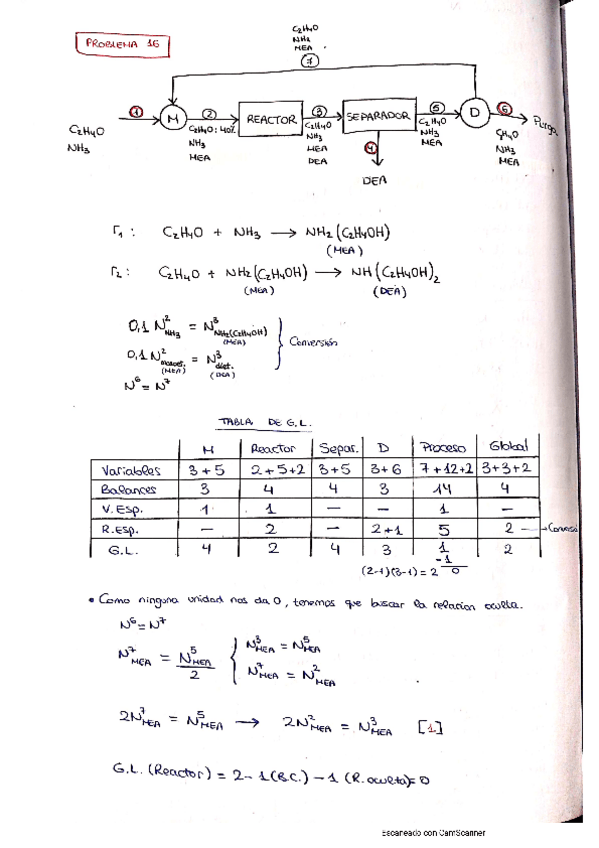 PROBLEMA 16
C₂H₄O
NH₃
MEA
7
1
M
2
REACTOR
3
SEPARADOR
5
D
6
Purga
C₂H₄O
NH₃
C₂H₄O: 40%
NH₃
MEA
C₂H₄O
NH₃
MEA
DEA
4
DEA
C₂H₄O
NH₃
MEA
C₂H₄O
NH₃
MEA
r₁: C₂H₄O + NH₃ → NH₂(C₂H₄OH)
(MEA)
r₂: C₂H₄O + NH₂(C₂H₄OH) → NH(C₂H₄OH)₂
(MEA) (DEA)
0,1 N²NH₃ = N³NH₂(C₂H₄OH)
(MEA)
Conversión
0,1 N² = N³
(MEA) (DEA)
N⁶ = N⁷
TABLA DE G.L.
M Reactor Separ. D Proceso Global
Variables 3+5 2+5+2 3+5 3+6 7+12+2 3+3+2
Balances 3 4 4 3 14 4
V.Esp. 1 1 — — 1 —
R.Esp. — 2 — 2+1 5 2
G.L. 4 2 4 3 1 2
-1
(2-1)(3-1) = 2 0
• Como ninguna unidad nos da 0, tenemos que buscar la relacion oculta.
N⁶ = N⁷
N⁷MEA = N⁵MEA / 2 { N³MEA = N⁵MEA
N⁷MEA = N²MEA
2N⁷MEA = N⁵MEA → 2N²MEA = N³MEA [1]
G.L. (Reactor) = 2 - 1 (B.C.) - 1 (R. oculta) = 0
Escaneado con CamScanner